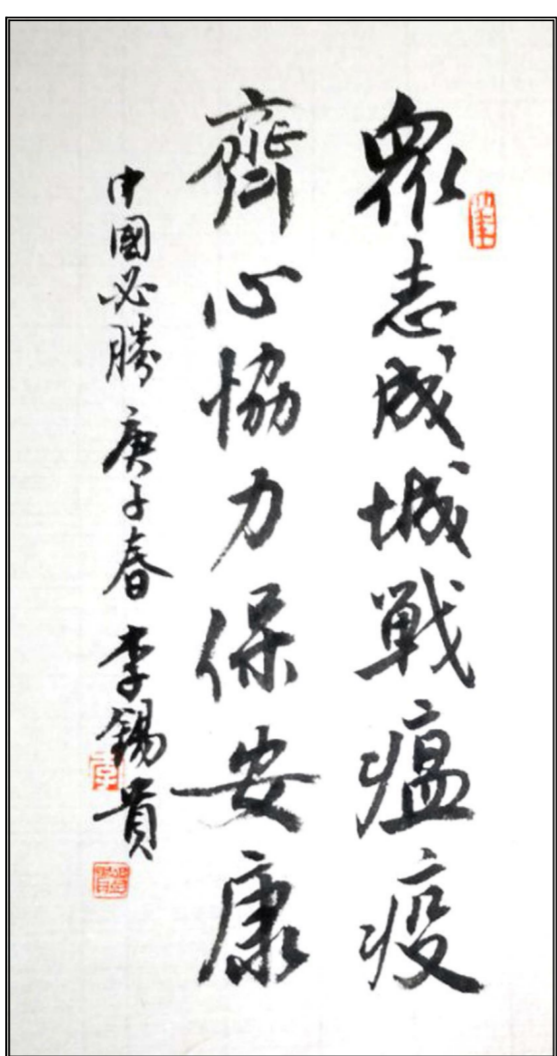 衆志成城戰瘟疫
齊心協力保安康
中國必勝 庚子春 李錫貴